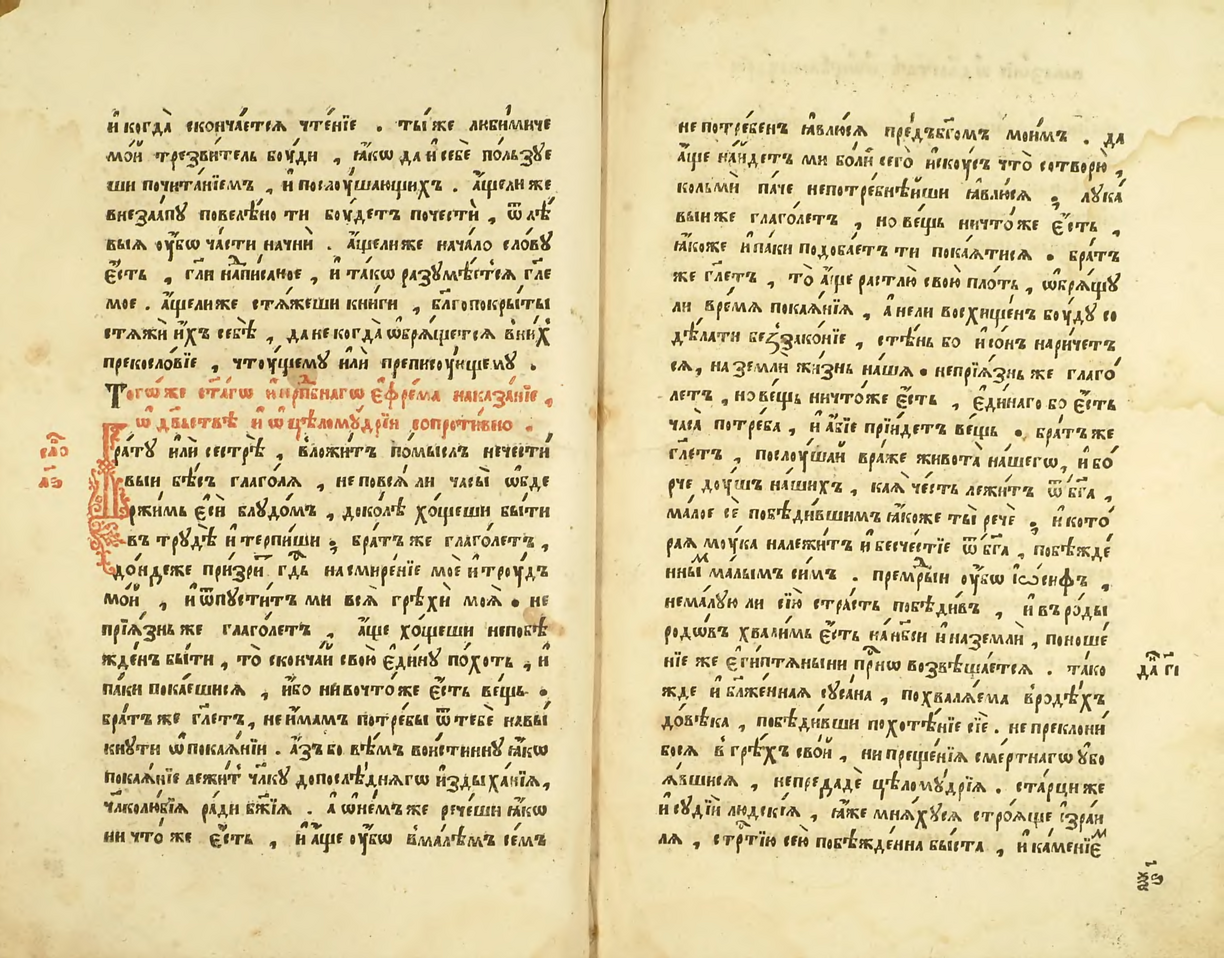 и҆ когда̀ скончае́тсѧ чте́нїе . ты́ же люби́миче
мо́й трезви́тель бꙋ́ди , ꙗ҆́кѡ да и҆ себѐ по́льзꙋе
ши почита́нїемъ , и҆ послꙋ́шающихъ . а҆́щели же
внеза́апꙋ повеле́но ти бꙋ́детъ поче́сти , ѿ лѣ́
выѧ ᲂу҆́бѡ ча́сти начнѝ . а҆́щели же нача́ло сло́вꙋ
є҆́сть , гл҃и напи́саное , и҆ та́кѡ разꙋмѣ́етсѧ гл҃е
мое . а҆́щели же стѧ́жеши кни́ги , бл҃гопокры́ты
стѧжѝ и҆́хъ себѣ̀ , да не когда̀ ѡ҆брѧ́щетсѧ в ни́х
прекосло́вїе , чтꙋ́щемꙋ и҆лѝ преписꙋ́ющемꙋ .
Того́ же ст҃а́гѡ и҆ прⷣпбнагѡ є҆фре́ма наказа́нїе ,
ѡ҆ дв҃ьствѣ и҆ ѡ҆ цѣломꙋ́дрїи сопроти́вно .
сло
л҃з
Бра́тꙋ и҆лѝ сестрѣ̀ , вложи́тъ по́мыслъ нечести
выи бѣ́съ глаго́лѧ , не по всѧ́ ли часы̀ ѡ҆бде
ржи́мь є҆сѝ блꙋдо́мъ , до ко́лѣ хо́щеши бы́ти
въ трꙋдѣ̀ и҆ терпи́ши ; бра́тъ же глаго́летъ ,
до́ндеже при́зритъ гдⷭ҇ь на смире́нїе моѐ и҆ трꙋ́дъ
мо́й , и҆ ѿпꙋ́ститъ ми всѧ̀ грѣхѝ моѧ̀ . не
прїѧ́знь же глаго́летъ , а҆́ще хо́щеши непобѣ
жде́нъ бы́ти , то̀ сконча́й свою̀ є҆ди́нꙋ по́хоть , и҆
па́ки пока́ешисѧ , и҆́бо ни во что́ же є҆́сть ве́щь .
бра́тъ же гл҃етъ , не и҆́мамъ потре́бы ѿ тебѐ навы́
кнꙋти ѡ҆ покаѧ́нїи . а҆́зъ бо вѣ́мъ вои́стиннꙋ ꙗ҆́кѡ
покаѧ́нїе лежи́т чл҃кꙋ до послѣ́днѧгѡ и҆здыха́нїѧ ,
чл҃колю́бїѧ ра́ди бж҃їѧ . а҆ ѡ҆ не́мъ же рече́ши ꙗ҆́кѡ
ни что́ же є҆́сть , и҆ а҆́ще ᲂу҆́бѡ в ма́лѣмъ се́мъ
не потре́бенъ ꙗ҆влю́сѧ пред̾ бг҃омъ мои́мъ . да
а҆́ще на́йдетъ ми бо́лїи сего̀ и҆скꙋ́съ что̀ сотворю̀ ,
кольмѝ па́че непотре́бнѣйши ꙗ҆влю́сѧ ; лꙋка́
выи же глаго́летъ , но ве́щь ничто́ же є҆́сть ,
ꙗ҆́коже и҆ па́ки подоба́етъ ти пока́ѧтисѧ . бра́тъ
же гл҃етъ , то̀ а҆́ще растлю̀ свою̀ пло́ть , ѡ҆брѧ́щꙋ
ли вре́мѧ покаѧ́нїѧ , а҆ не ли восхище́нъ бꙋ́дꙋ со
дѣ́лати без̾зако́нїе , стѣ́нь бо и҆ со́нъ нариче́т
сѧ , на землѝ жи́знь на́ша . непрїѧ́знь же глаго́
летъ , но ве́щь ничто́же є҆́сть , є҆ди́наго бо є҆́сть
часа̀ потре́ба , и҆ а҆́бїе прїи́детъ ве́щь . бра́тъ же
гл҃етъ , послꙋ́шай вра́же живота̀ на́шегѡ , и҆ бо́
рче дꙋ́шъ на́шихъ , ка́ѧ че́сть лежи́тъ ѿ бг҃а ,
ма́лое сѐ побѣди́вшимъ ꙗ҆́коже ты̀ речѐ ; и҆ кото́
раѧ мꙋ́ка належи́тъ и҆ безче́стїе ѿ бг҃а , побѣжде́
нны́м ма́лымъ си́мъ . премⷣрыи ᲂу҆́бѡ і҆ѡ́сифъ ,
нема́лꙋю ли сїю̀ стра́сть побѣди́въ , и҆ въ ро́ды
родѡ́въ хвали́мь є҆́сть на нб҃си и҆ на землѝ , поноше́
нїе же є҆ги́птѧныни прⷭ҇нѡ возвѣща́етсѧ . та́ко
да́н гі
жде и҆ бл҃же́ннаѧ сꙋса́на , похвалѧ́ема в родѣ́хъ
до вѣ́ка , побѣди́вши похотѣ́нїе сїѐ . не преклони́
босѧ в грѣ́хъ сво́й , ни преще́нїѧ сме́ртнагѡ ᲂу҆бо
ѧ́вшисѧ , не предадѐ цѣломꙋ́дрїѧ . ста́рцы же
и҆ сꙋдїѝ лю́дскїѧ , ꙗ҆́же мнѧ́хꙋсѧ строѧ́ще і҆зра́и
лѧ , стрⷭ҇тїю се́ю побѣжде́нна бы́ста , и҆ ка́менїем